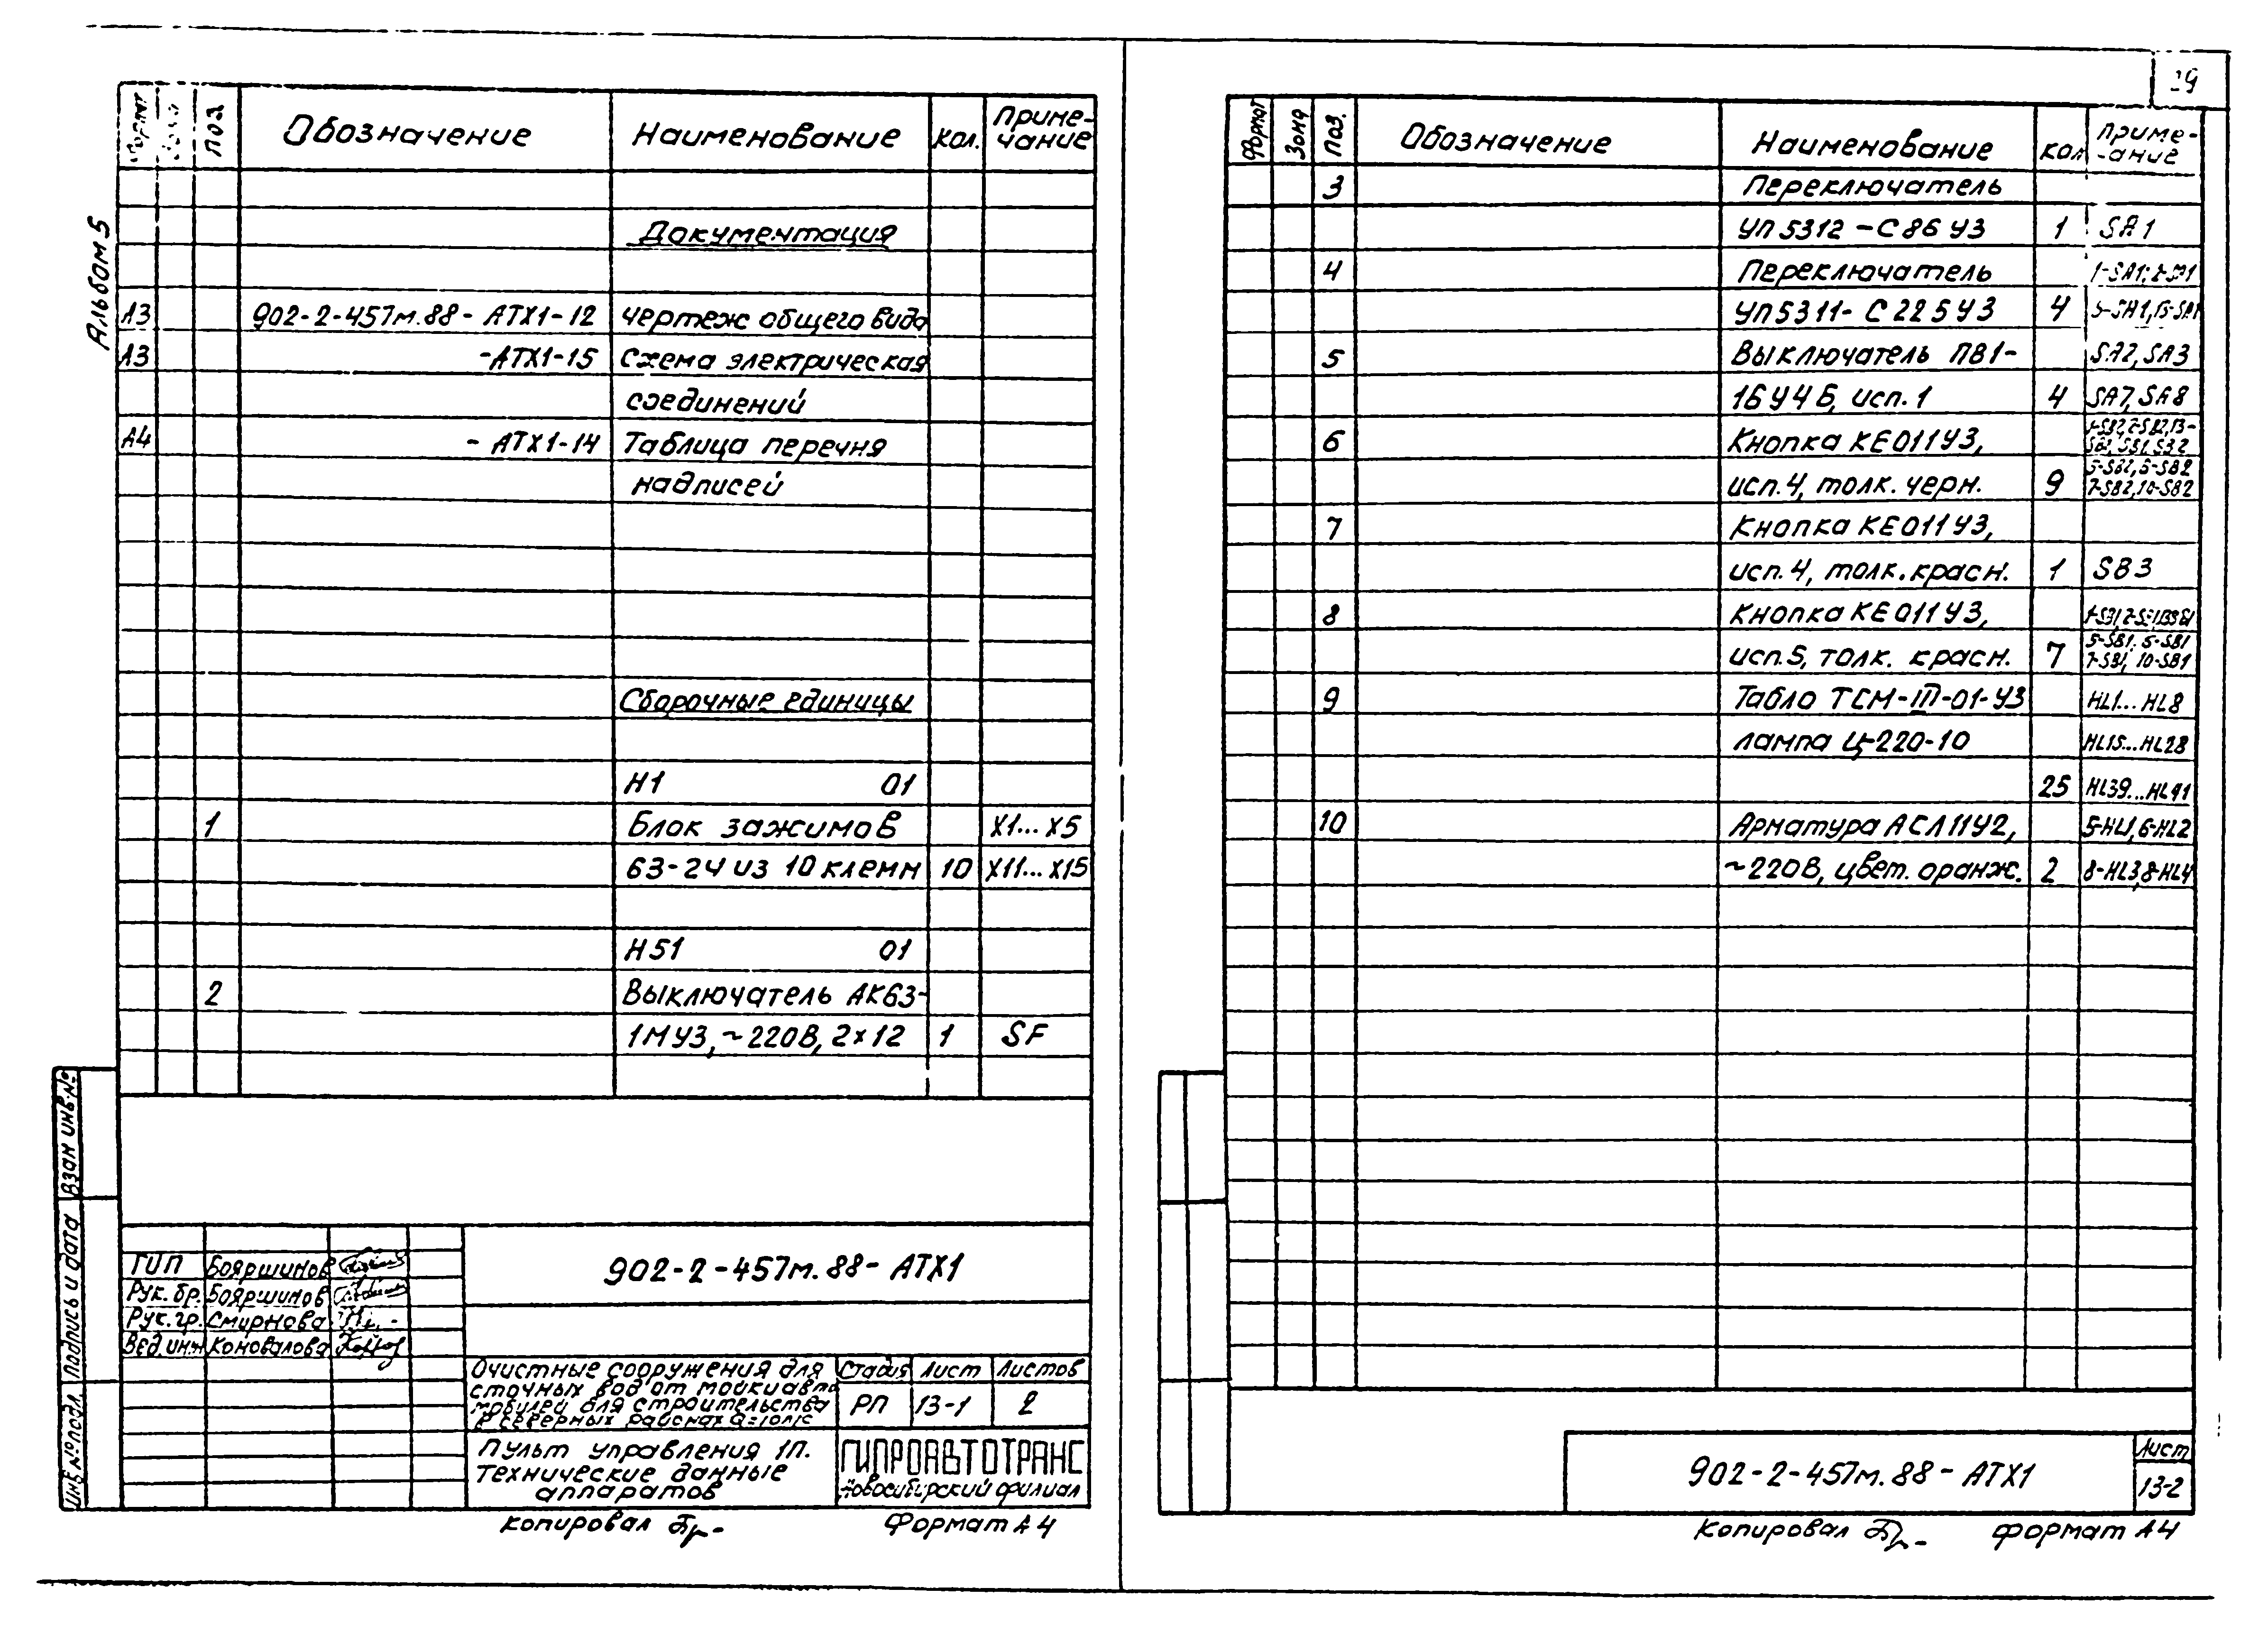 Альбом 5
Поз. Обозначение Наименование Кол. Приме-
чание
Документация
А3 902-2-457м.88- АТХ1-12 Чертеж общего вида
А3 -АТХ1-15 Схема электрическая
соединений
А4 - АТХ1-14 Таблица перечня
надписей
Сборочные единицы
Н1 01
1 Блок зажимов Х1...Х5
63-24 из 10 клемм 10 Х11...Х15
Н51 01
2 Выключатель АК63-
1МУ3, ~220В, 2х12 1 SF
Взам инв.№
Подпись и дата
Инв.№ подл.
ГИП Бояршинов
Рук. бр. Бояршинов
Рук. гр. Смирнова
Вед.инж Коновалова
902-2-457м.88- АТХ1
Очистные сооружения для
сточных вод от мойки авто
мобилей для строительства
в северных районах Q=10л/с
Стадия Лист Листов
РП 13-1 2
Пульт управления 1П.
Технические данные
аппаратов
ГИПРОАВТОТРАНС
Новосибирский филиал
Копировал Формат А4
Формат Зона Поз. Обозначение Наименование Кол Приме-
-ание
3 Переключатель
УП5312-С86 У3 1 SA1
4 Переключатель
УП5311- С225У3 4
5 Выключатель ПВ1-
16У4Б, исп.1 SA2, SA3
4 SA7, SA8
6 Кнопка КЕ011У3,
исп.4, толк. черн. 9 5-SB2, 6-SB2
7-SB2, 10-SB2
7 Кнопка КЕ011У3,
исп.4, толк.красн. 1 SB3
8 Кнопка КЕ011У3,
исп.5, толк. красн. 7 5-SB1, 6-SB1
7-SB1, 10-SB1
9 Табло ТСМ-III-01-У3 HL1...HL8
лампа Ц-220-10 HL15...HL28
25 HL39...HL41
10 Арматура АСЛ11У2, 5-HL1, 6-HL2
~220В, цвет. оранж. 2 8-HL3, 8-HL4
902-2-457м.88- АТХ1
Лист
13-2
Копировал Формат А4